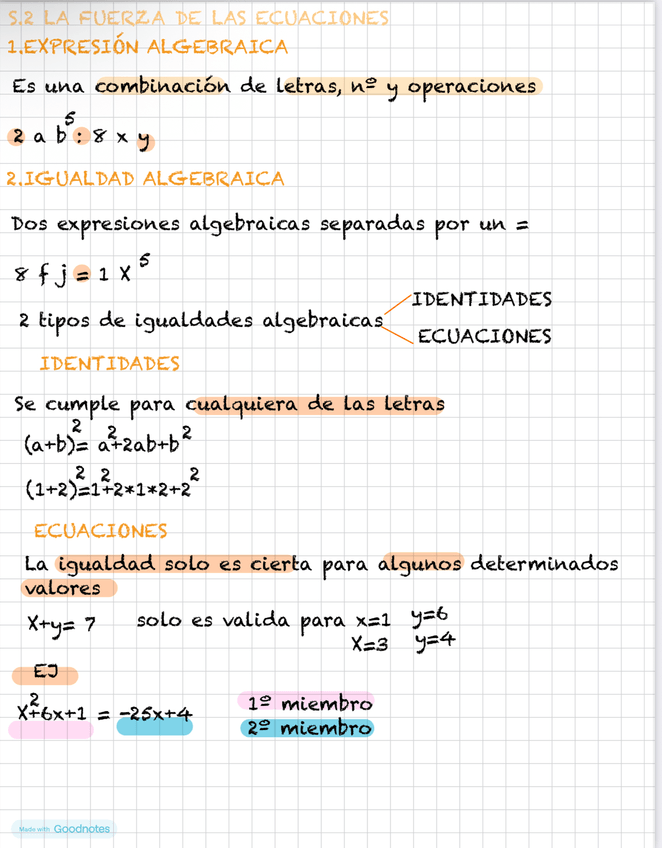 5.2 LA FUERZA DE LAS ECUACIONES
1.EXPRESIÓN ALGEBRAICA
Es una combinación de letras, nº y operaciones
2 a b⁵ : 8 x y
2.IGUALDAD ALGEBRAICA
Dos expresiones algebraicas separadas por un =
8 f j = 1 X⁵
2 tipos de igualdades algebraicas
IDENTIDADES
ECUACIONES
IDENTIDADES
Se cumple para cualquiera de las letras
(a+b)²= a²+2ab+b²
(1+2)²=1²+2*1*2+2²
ECUACIONES
La igualdad solo es cierta para algunos determinados
valores
X+y= 7 solo es valida para x=1 y=6
X=3 y=4
EJ
X²+6x+1 = -25x+4 1º miembro
2º miembro
Made with Goodnotes